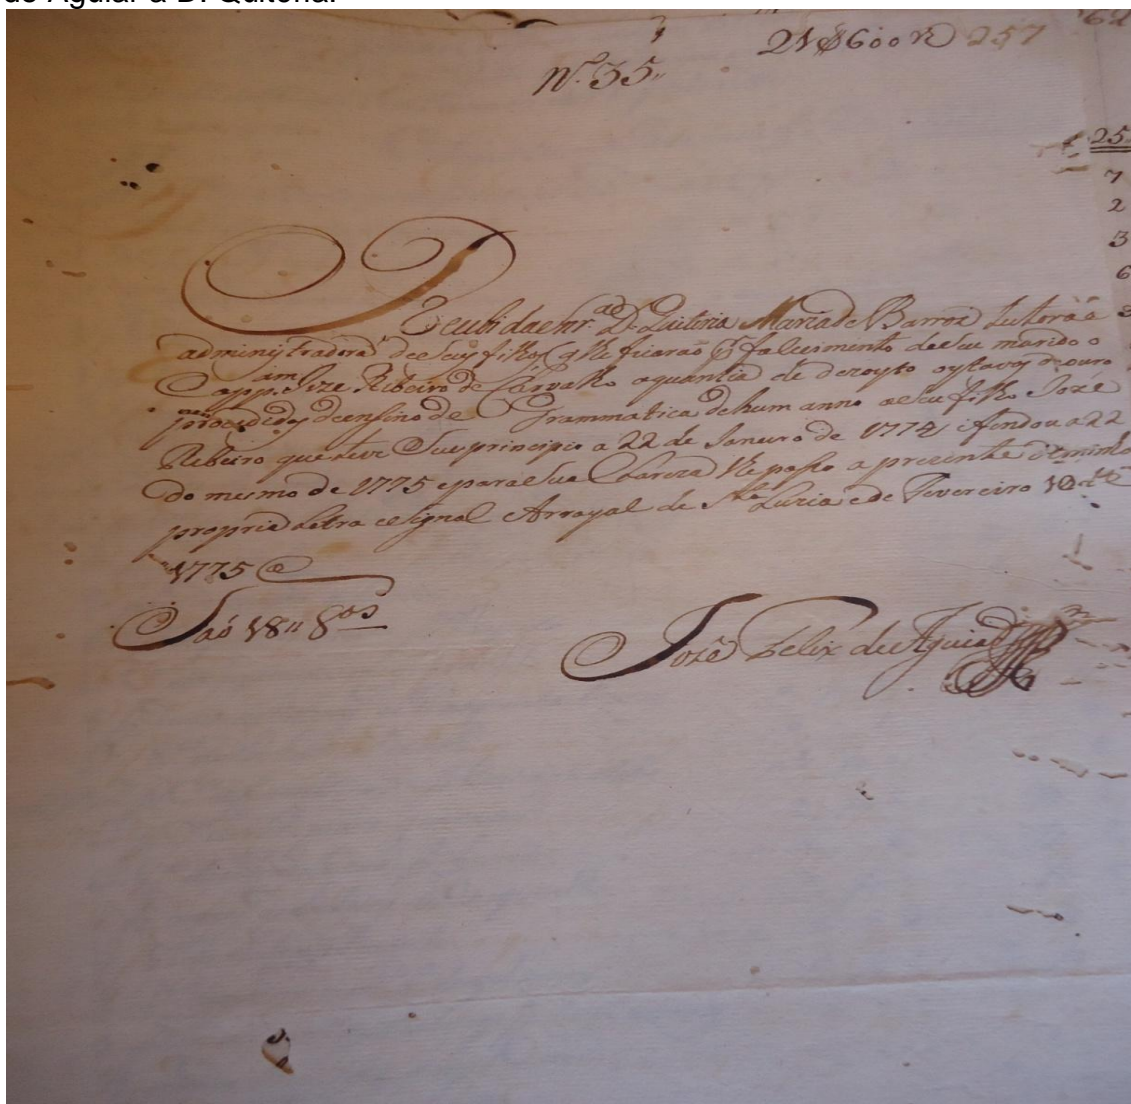 de Aguiar a D. Quitéria.
21$600 R 257
Nº. 35
25
7
2
3
6
Recebi da Snr.ª D. Quiteria Maria de Barros tutora e
administradora de seus filhos q lhe ficarão p falecimento de seu marido o
Cappam. Joze Ribeiro de Carvalho a quantia de dezoyto oytavas de ouro
procedidas do ensino de Grammatica de hum anno ao seu filho Joze
Ribeiro que teve seu principio a 22 de Janeiro de 1774 e findou a 22
do mesmo de 1775 e para sua clareza lhe passo a prezente de minha
propria letra e signal Arrayal de Sta Luzia e de Fevereiro 10 de
1775
Saõ 18" 8as
Jozê Felix de Aguiar